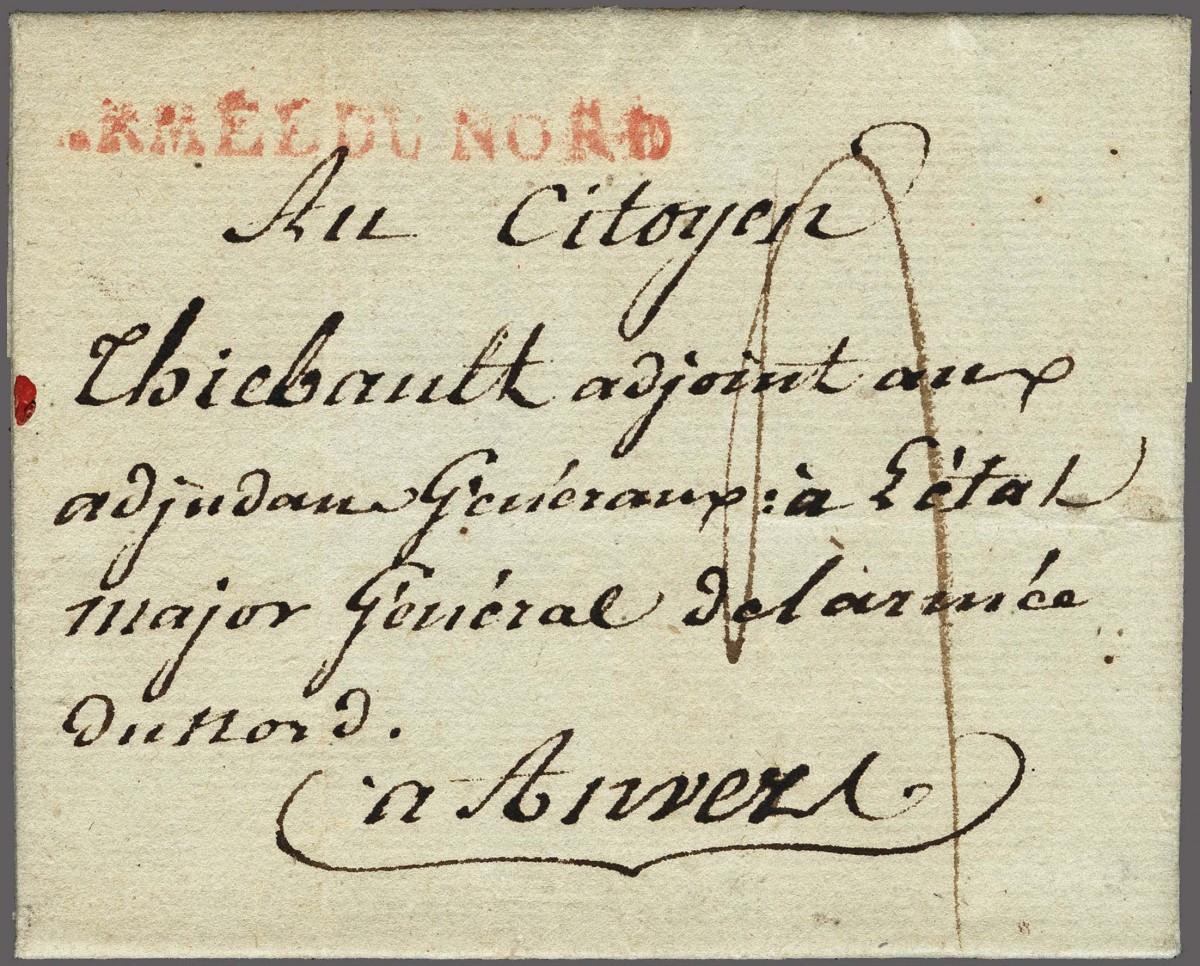 ARMÉE DU NORD
Au Citoyen
Thiebault adjoint aux
adjudans Généraux : à L'état
major Général de l'armée
du nord.
a Anvers